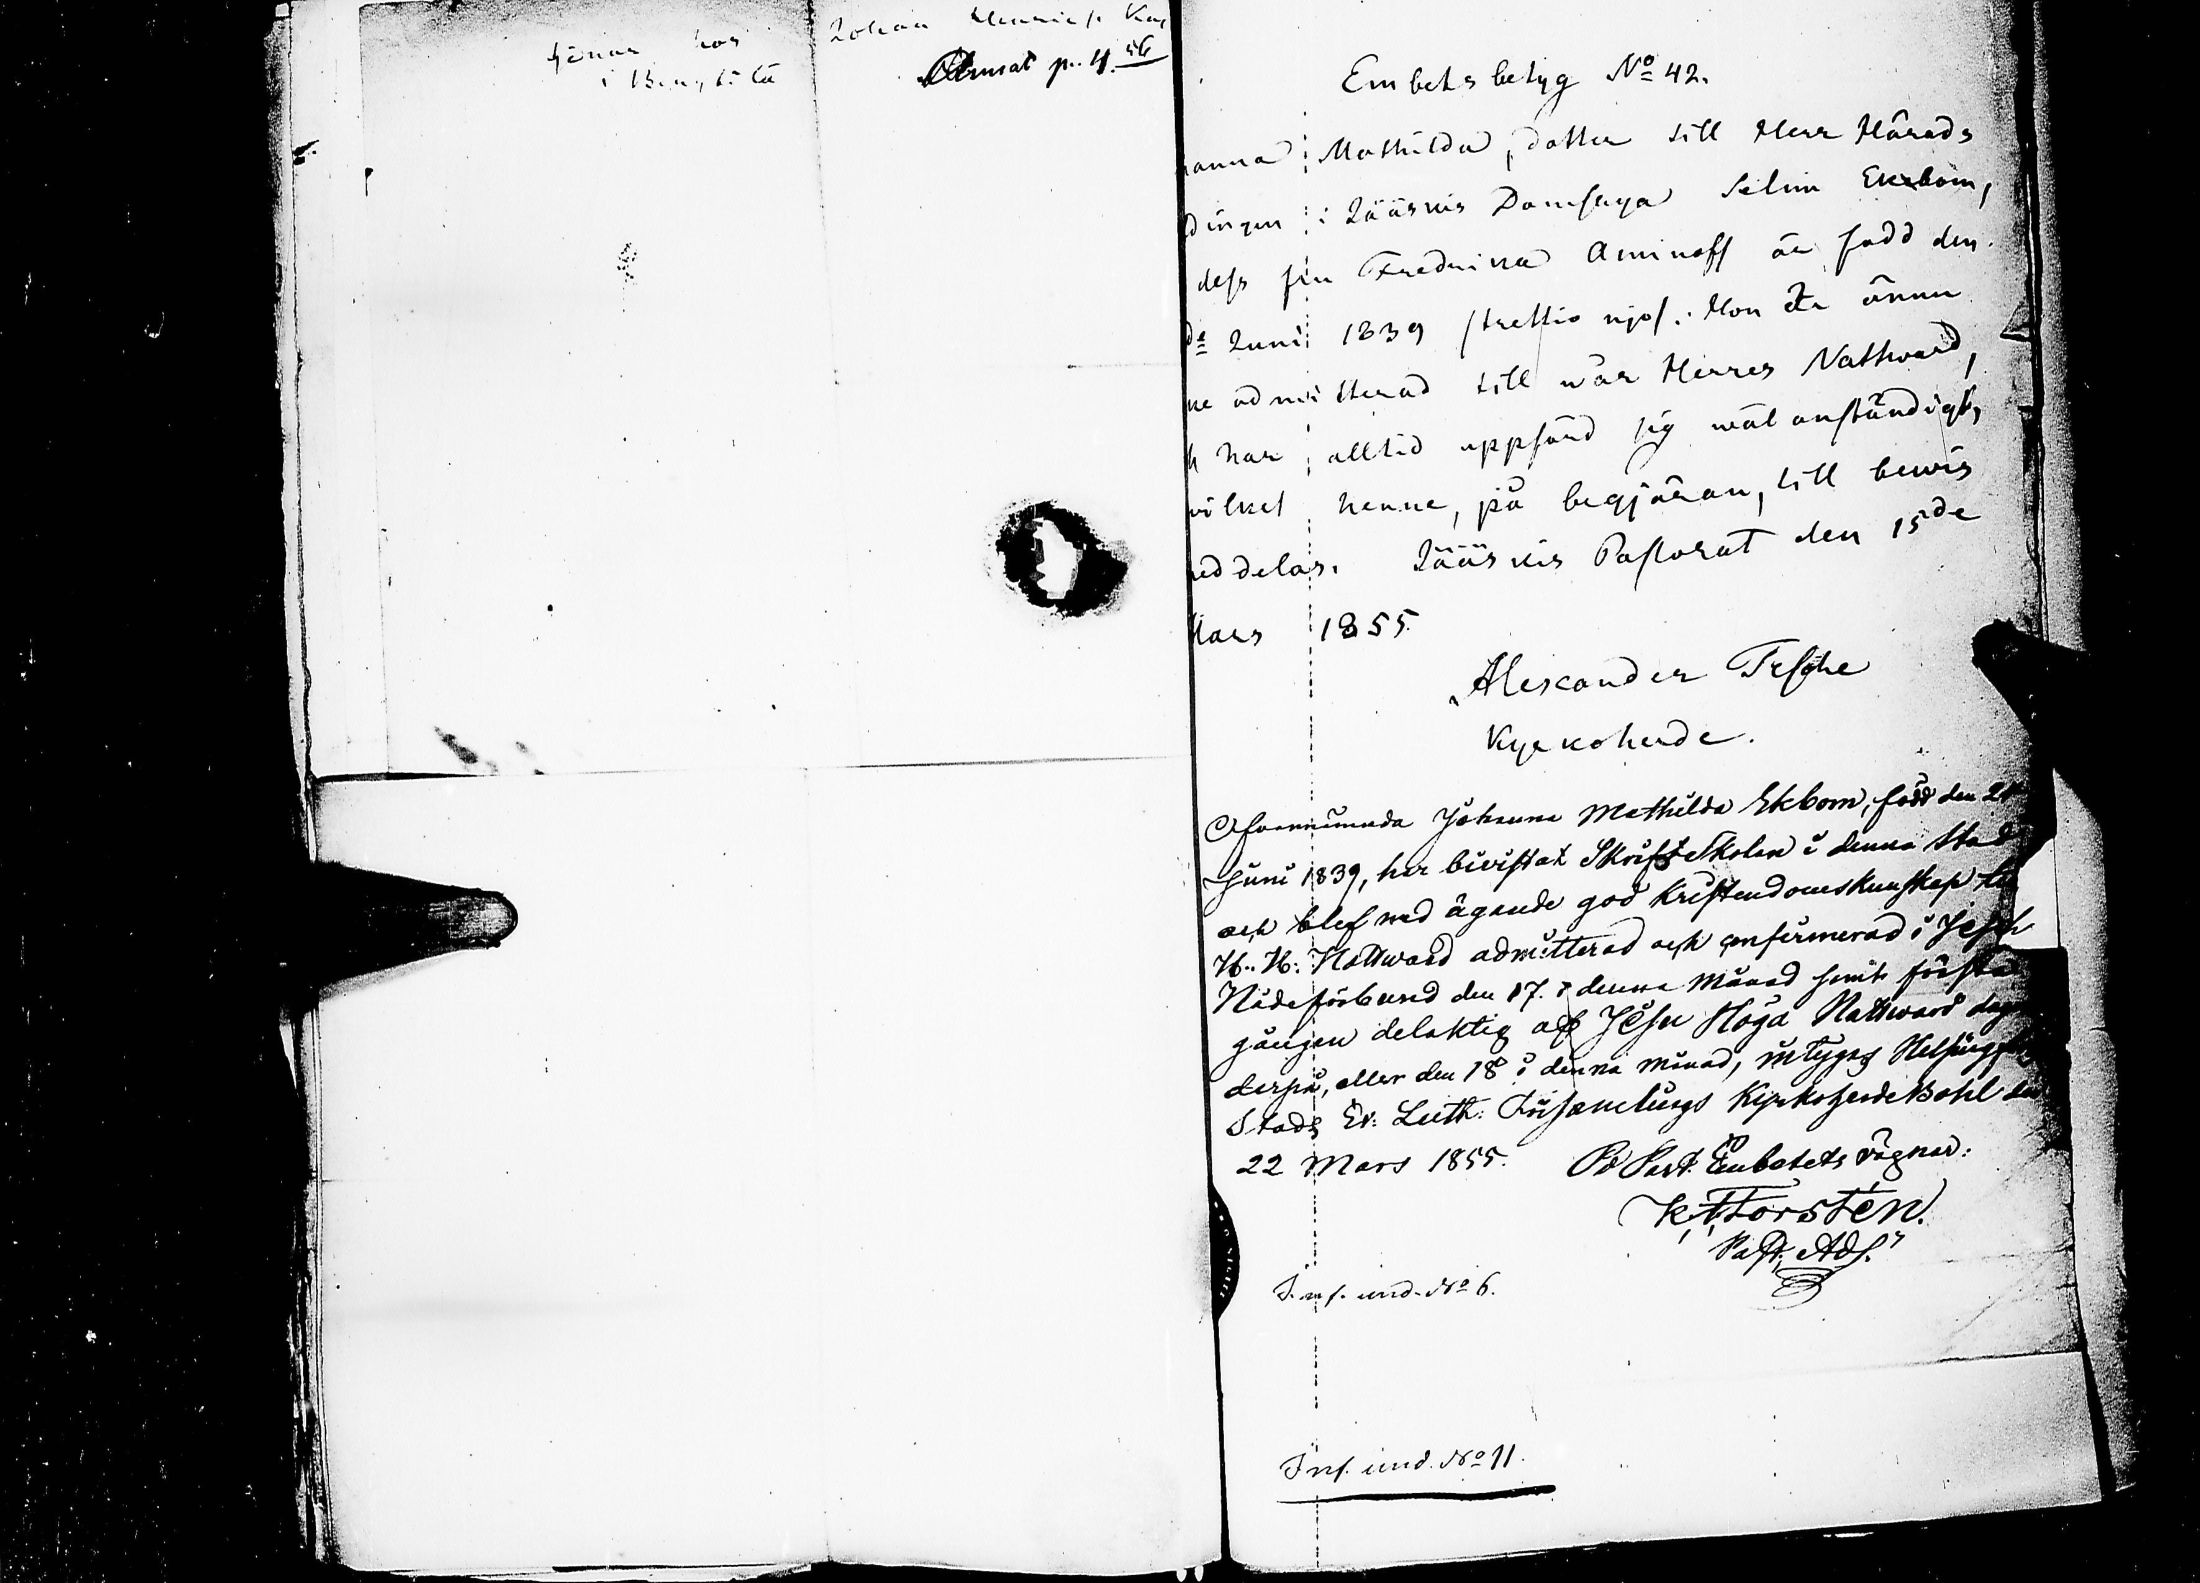 tjenar hos Johan
i Bengtstå
p. 4.
Embetsbetyg No 42.
anna Mathilda, dotter till Herr Härads
dingen i Jääskis Domsaga Selim Ekebom,
dess fru Fredrika Aminoff är född den
de Juni 1839 /trettio nio/. Hon är ännu
ke admitterad till wår Herres Nattward,
h har alltid uppförd sig wäl anständigt,
vilket henne, på begjäran, till bewis
eddelas. Jääskis Pastorat den 15de
Mars 1855
Alexander Tesche
Kyrkoherde.
Ofvannämnda Johanna Mathilda Ekbom, född den 21
Juni 1839, har bivistat Skriftskolan i denna Stad
och blef med ägande god Kristendomskunskap
H. H. Nattward admitterad och confirmerad i Jesu
Nådeförbund den 17. i denna Månad samt första
gången delaktig af Jesu Höga Nattward dagen
derpå, eller den 18 i denna månad, intygas Helsingfors
Stads Ev: Luth: Församlings KyrkoherdeBohl den
22 Mars 1855. På Past. Embetets vägnar:
K. T. Forstén.
Past. Adj.
Inf. und. No 6.
Inf. und. No 11.